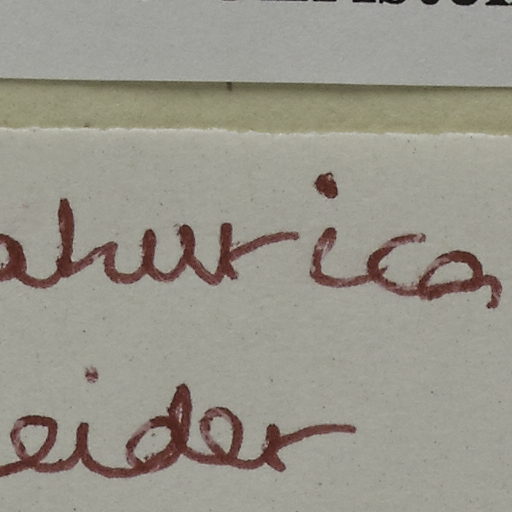 ahurica
eider